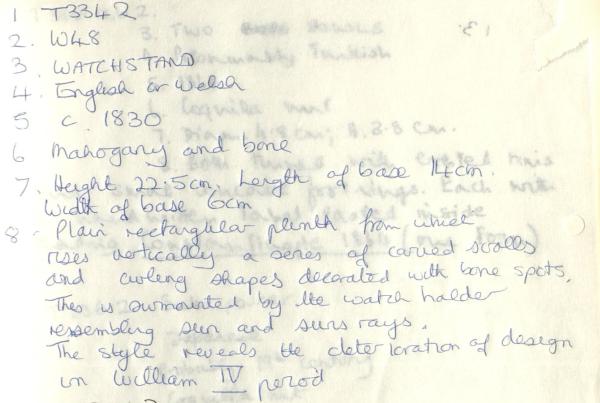 1 T3342
2. W48
3. WATCHSTAND
4. English or Welsh
5 c. 1830
6 Mahogany and bone
7. Height 22.5cm. Length of base 14cm.
Width of base 6cm
8. Plain rectangular plinth from which
rises vertically a series of carved scrolls
and curling shapes decorated with bone spots.
This is surmounted by the watch holder
ressembling sun and suns rays.
The style reveals the deterioration of design
in William IV period